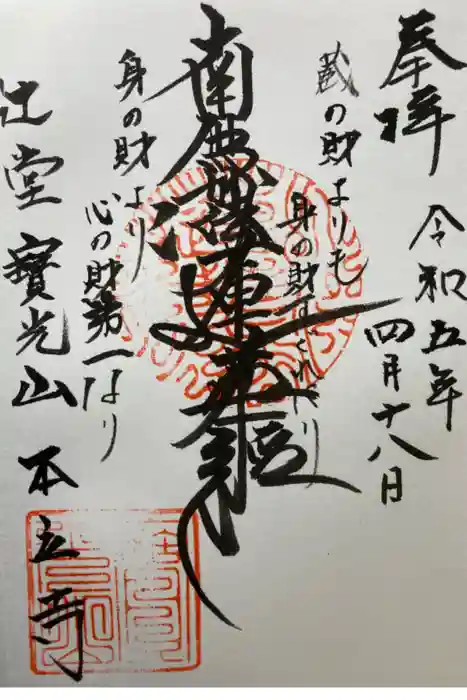 奉拝
令和五年
四月十八日
蔵の財よりも
身の財すぐれたり
南無妙法蓮華経
身の財より
心の財第一なり
辻堂 寶光山 本立寺